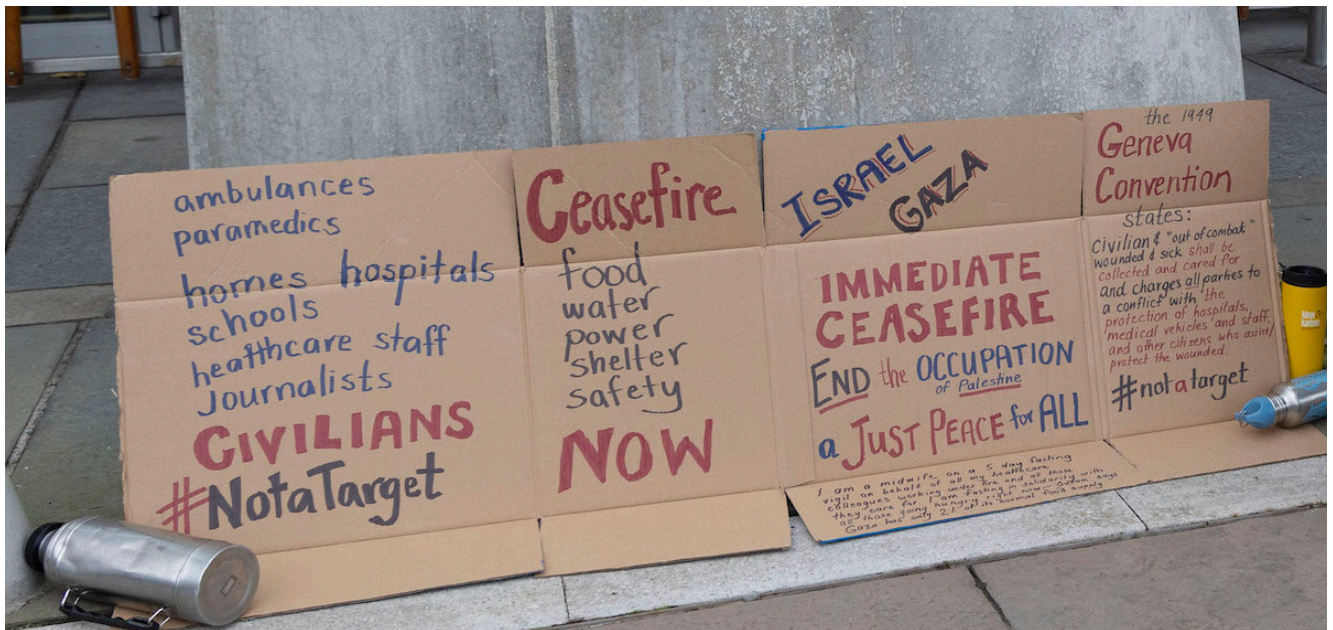 ambulances
paramedics
homes hospitals
schools
healthcare staff
journalists
CIVILIANS
#NotaTarget
Ceasefire
food
water
power
shelter
safety
NOW
ISRAEL
GAZA
IMMEDIATE
CEASEFIRE
END the OCCUPATION
of Palestine
a JUST PEACE for ALL
I am a midwife on a 5 day fasting
vigil on behalf of all my healthcare
colleagues working under fire and all those
they care for. I am fasting in solidarity with
all those going hungry right now - Oxfam says
Gaza has only 2% of its normal food supply
the 1949
Geneva
Convention
states:
civilian & "out of combat"
wounded & sick shall be
collected and cared for
and charges all parties to
a conflict with the
protection of hospitals,
medical vehicles and staff,
and other citizens who assist/
protect the wounded.
#notatarget
Klean
Kanteen